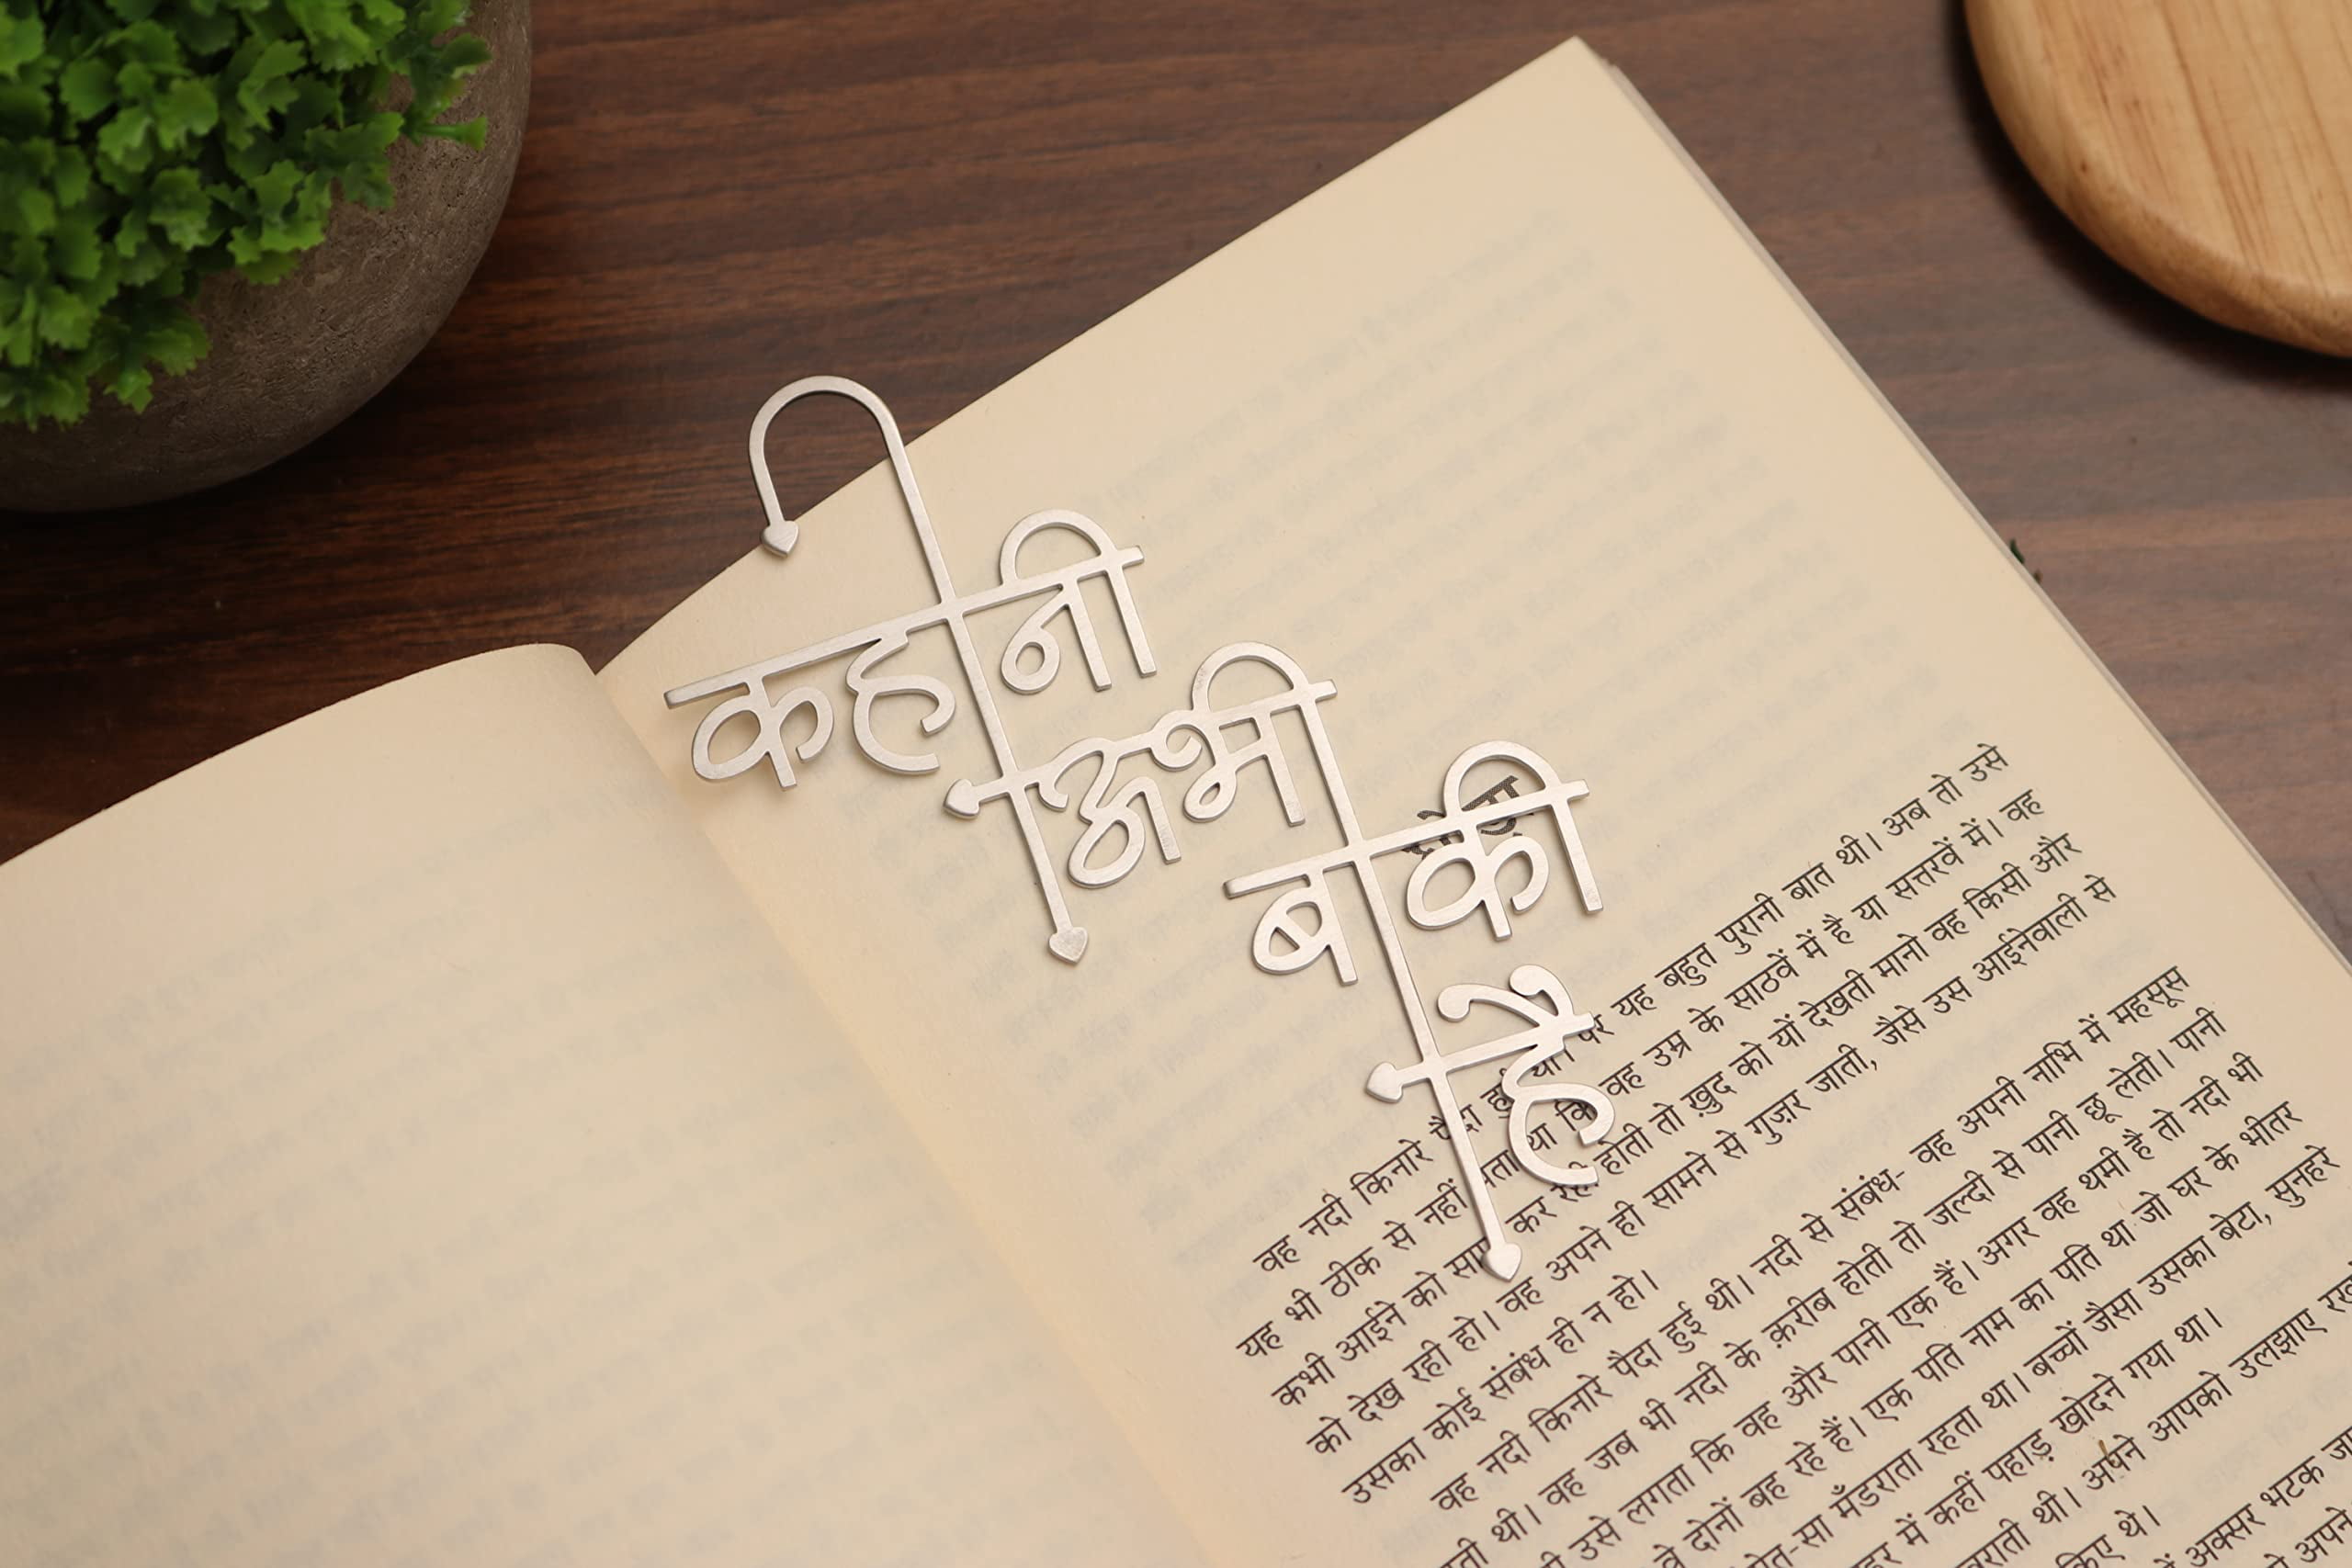 कहानी
अभी
बाकी
है
वह नदी किनारे पैदा हुई थी। पर यह बहुत पुरानी बात थी। अब तो उसे
यह भी ठीक से नहीं पता था कि वह उम्र के साठवें में है या सत्तरवें में। वह
कभी आईने को साफ़ कर रही होती तो ख़ुद को यों देखती मानो वह किसी और
को देख रही हो। वह अपने ही सामने से गुज़र जाती, जैसे उस आईनेवाली से
उसका कोई संबंध ही न हो।
वह नदी किनारे पैदा हुई थी। नदी से संबंध- वह अपनी नाभि में महसूस
थी। वह जब भी नदी के क़रीब होती तो जल्दी से पानी छू लेती। पानी
उसे लगता कि वह और पानी एक हैं। अगर वह थमी है तो नदी भी
वे दोनों बह रहे हैं। एक पति नाम का पति था जो घर के भीतर
मँडराता रहता था। बच्चों जैसा उसका बेटा, सुनहरे
में कहीं पहाड़ खोदने गया था।
थी। अपने आपको उलझाए
थे।
अक्सर भटक
अपने